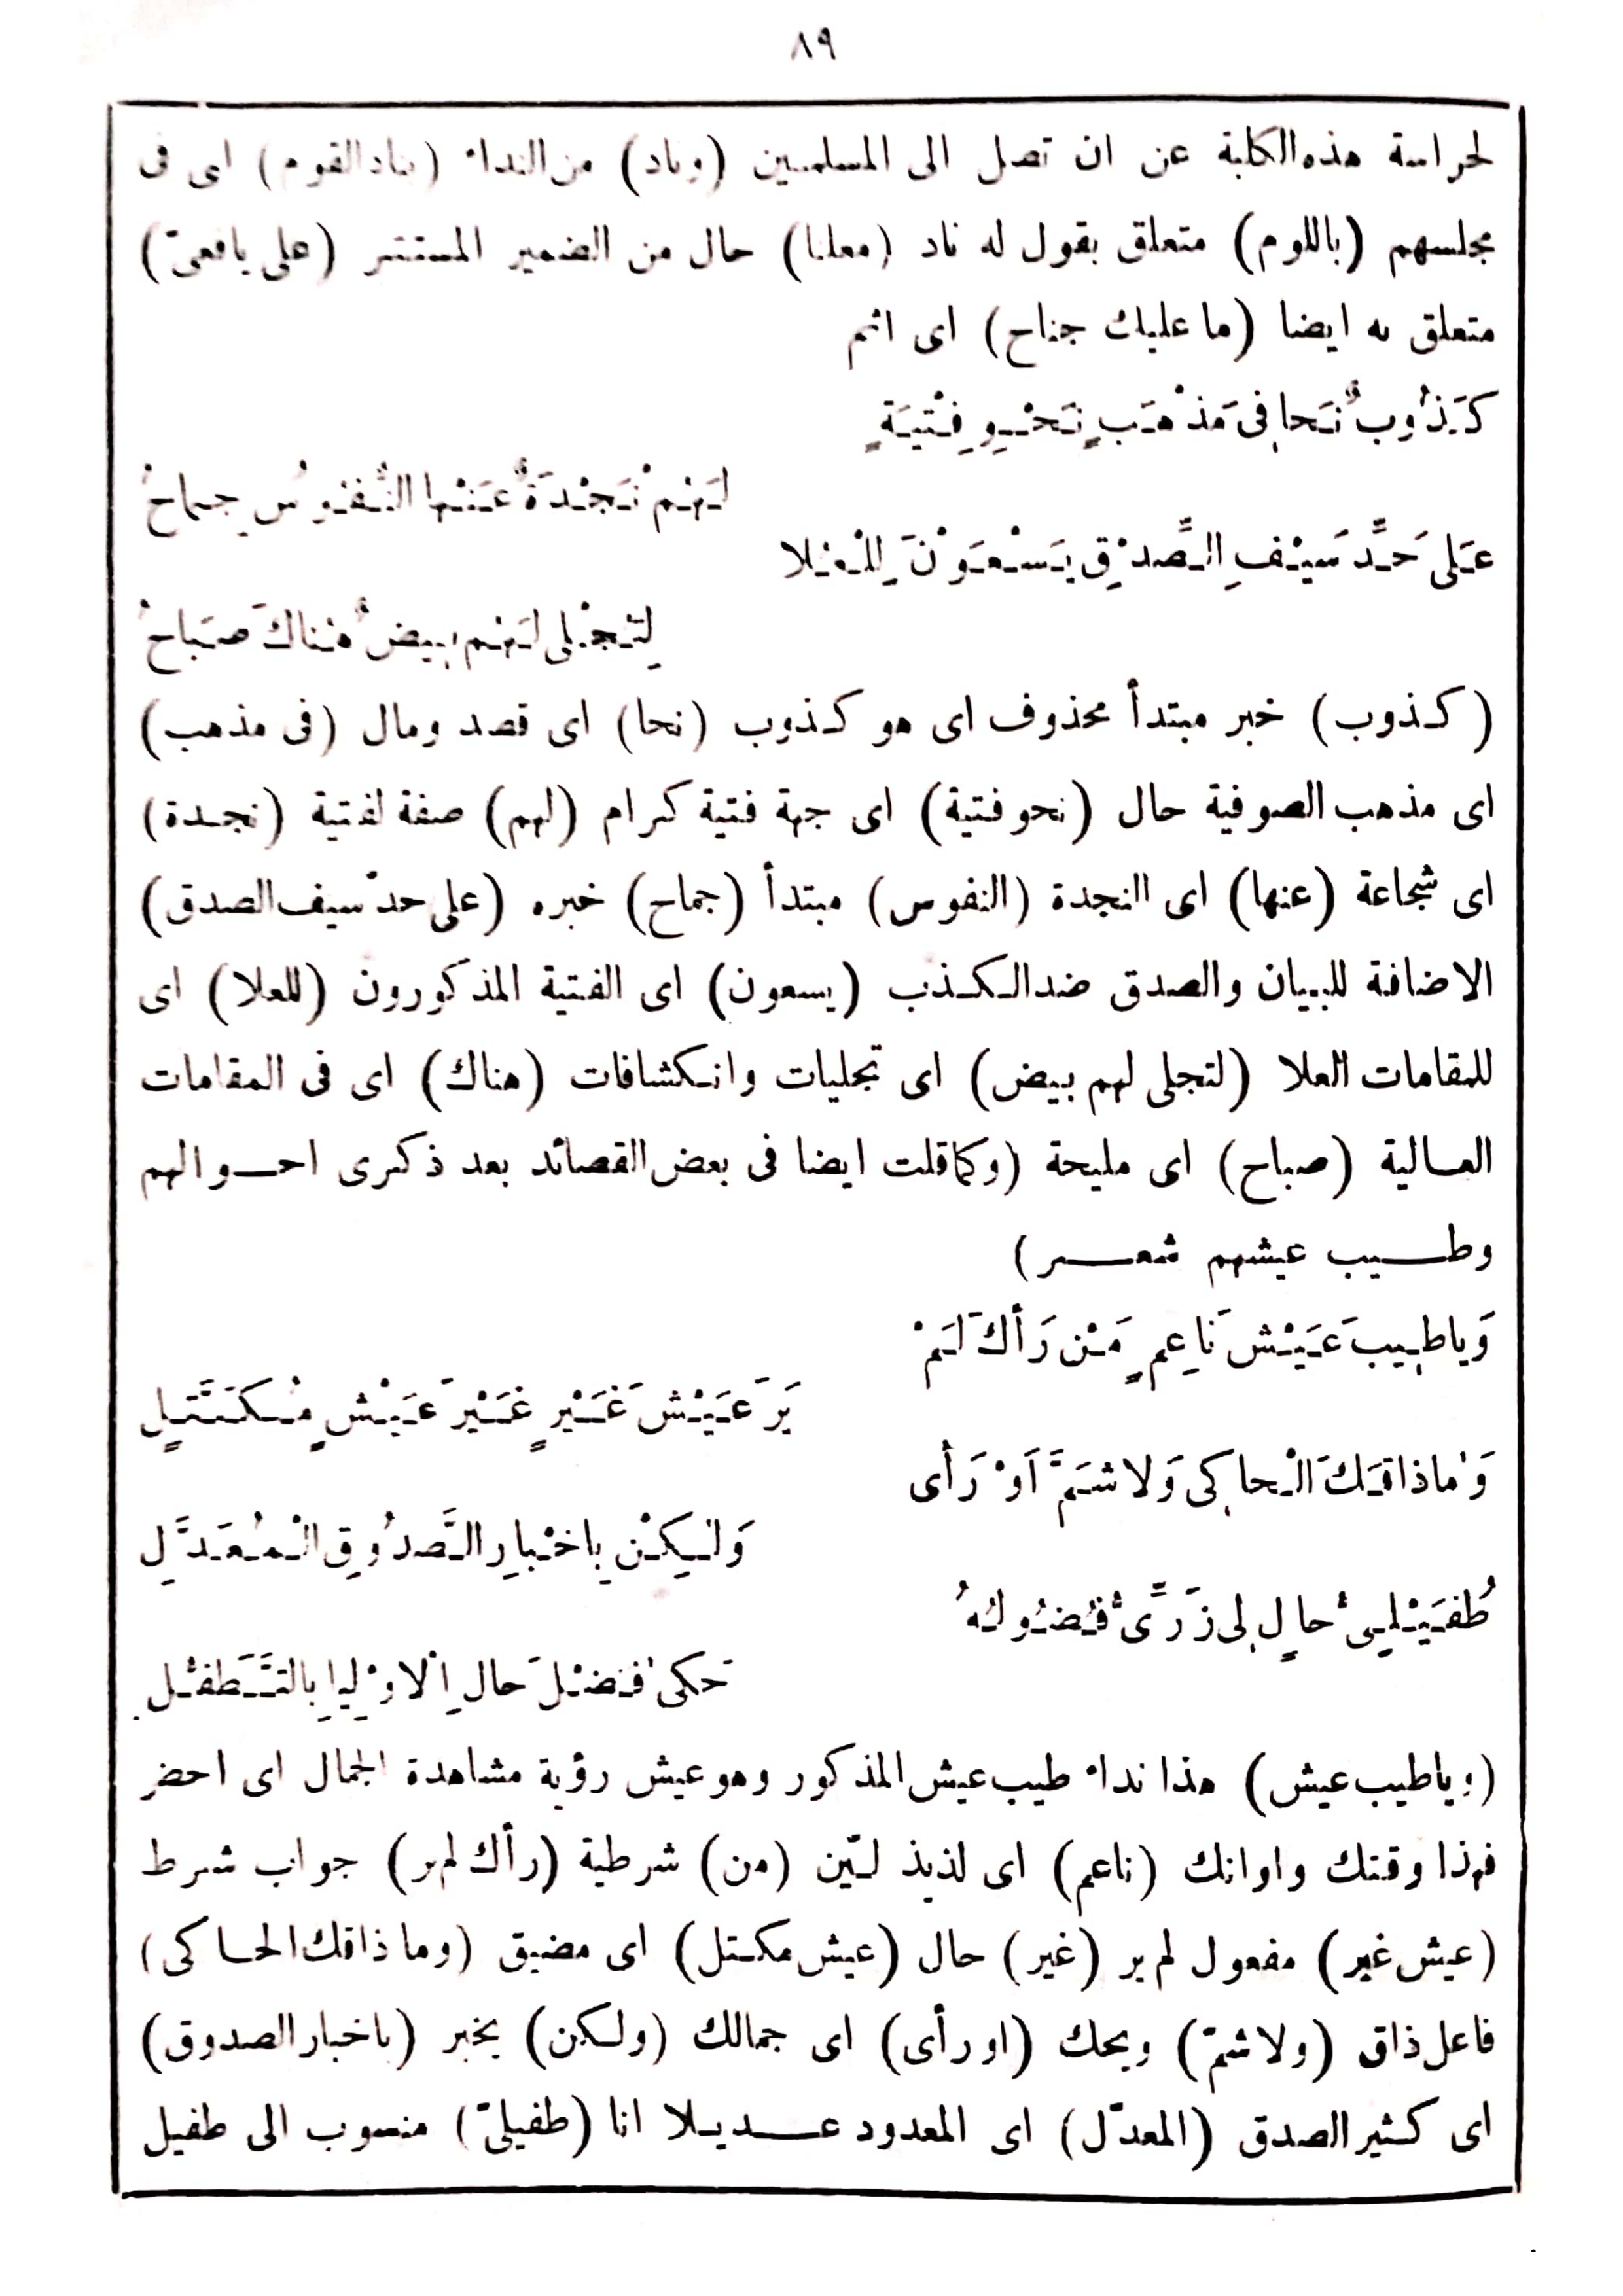 ٨٩
لحراسة هذه الكلبة عن ان تصل الى المسلمين (وناد) من النداء (بناد القوم) اى فى
مجلسهم (باللوم) متعلق بقول له ناد (معلنا) حال من الضمير المستتر (على يافعىّ)
متعلق به ايضا (ما عليك جناح) اى اثم
كَذُوبٌ نَحَا فِى مَذْهَبٍ نَحْوِ فِتْيَةٍ
لَهُمْ نَجْدَةٌ عَنْهَا النُّفُوسُ جِمَاحُ
عَلَى حَدِّ سَيْفِ الصِّدْقِ يَسْعَوْنَ لِلْعُلا
لِتُجْلَى لَهُمْ بِيضٌ هُنَاكَ صَبَاحُ
(كذوب) خبر مبتدأ محذوف اى هو كذوب (نحا) اى قصد ومال (فى مذهب)
اى مذهب الصوفية حال (نحو فتية) اى جهة فتية كرام (لهم) صفة لفتية (نجدة)
اى شجاعة (عنها) اى النجدة (النفوس) مبتدأ (جماح) خبره (على حدّ سيف الصدق)
الاضافة للبيان والصدق ضد الكذب (يسعون) اى الفتية المذكورون (للعلا) اى
للمقامات العلا (لتجلى لهم بيض) اى تجليات وانكشافات (هناك) اى فى المقامات
العالية (صباح) اى مليحة (وكما قلت ايضا فى بعض القصائد بعد ذكرى احوالهم
وطيب عيشهم شعر)
وَيا طِيبَ عَيْشٍ نَاعِمٍ مَنْ رَأكَ لَمْ
يَرَ عَيْشَ غَيْرٍ غَيْرَ عَيْشٍ مُكَتَّلٍ
وَما ذاقَكَ الْحاكِى وَلا شَمَّ اَوْ رَأى
وَلٰكِنْ بِاخْبارِ الصَّدُوقِ الْمُعَدَّلِ
طُفَيْلِىُّ حالٍ لِى زَرِىٌّ فُضُولُهُ
حَكىٰ فَضْلَ حالِ اْلاوْلِيا بِالتَّطَفُّلِ
(ويا طيب عيش) هذا نداء طيب عيش المذكور وهو عيش رؤية مشاهدة الجمال اى احضر
فهذا وقتك واوانك (ناعم) اى لذيذ ليّن (من) شرطية (رأك لم ير) جواب شرط
(عيش غير) مفعول لم ير (غير) حال (عيش مكتل) اى مضيق (وما ذاقك الحاكى)
فاعل ذاق (ولا شمّ) ريحك (او رأى) اى جمالك (ولكن) يخبر (باخبار الصدوق)
اى كثير الصدق (المعدّل) اى المعدود عديلا انا (طفيلىّ) منسوب الى طفيل